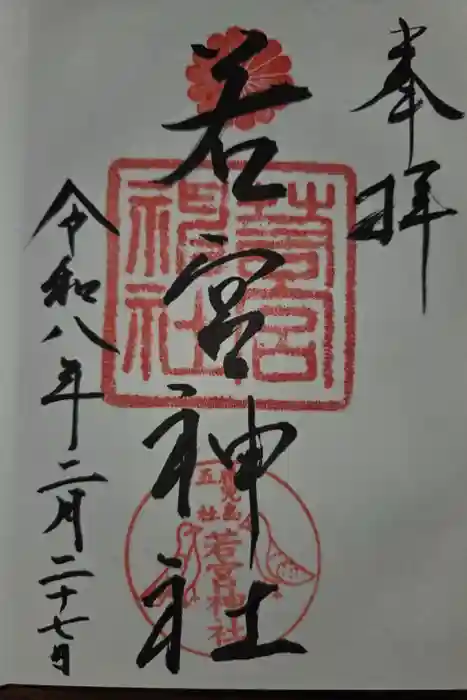 奉拝
若宮神社
若宮神社
鹿児島
五社
若宮神社
令和八年二月二十七日